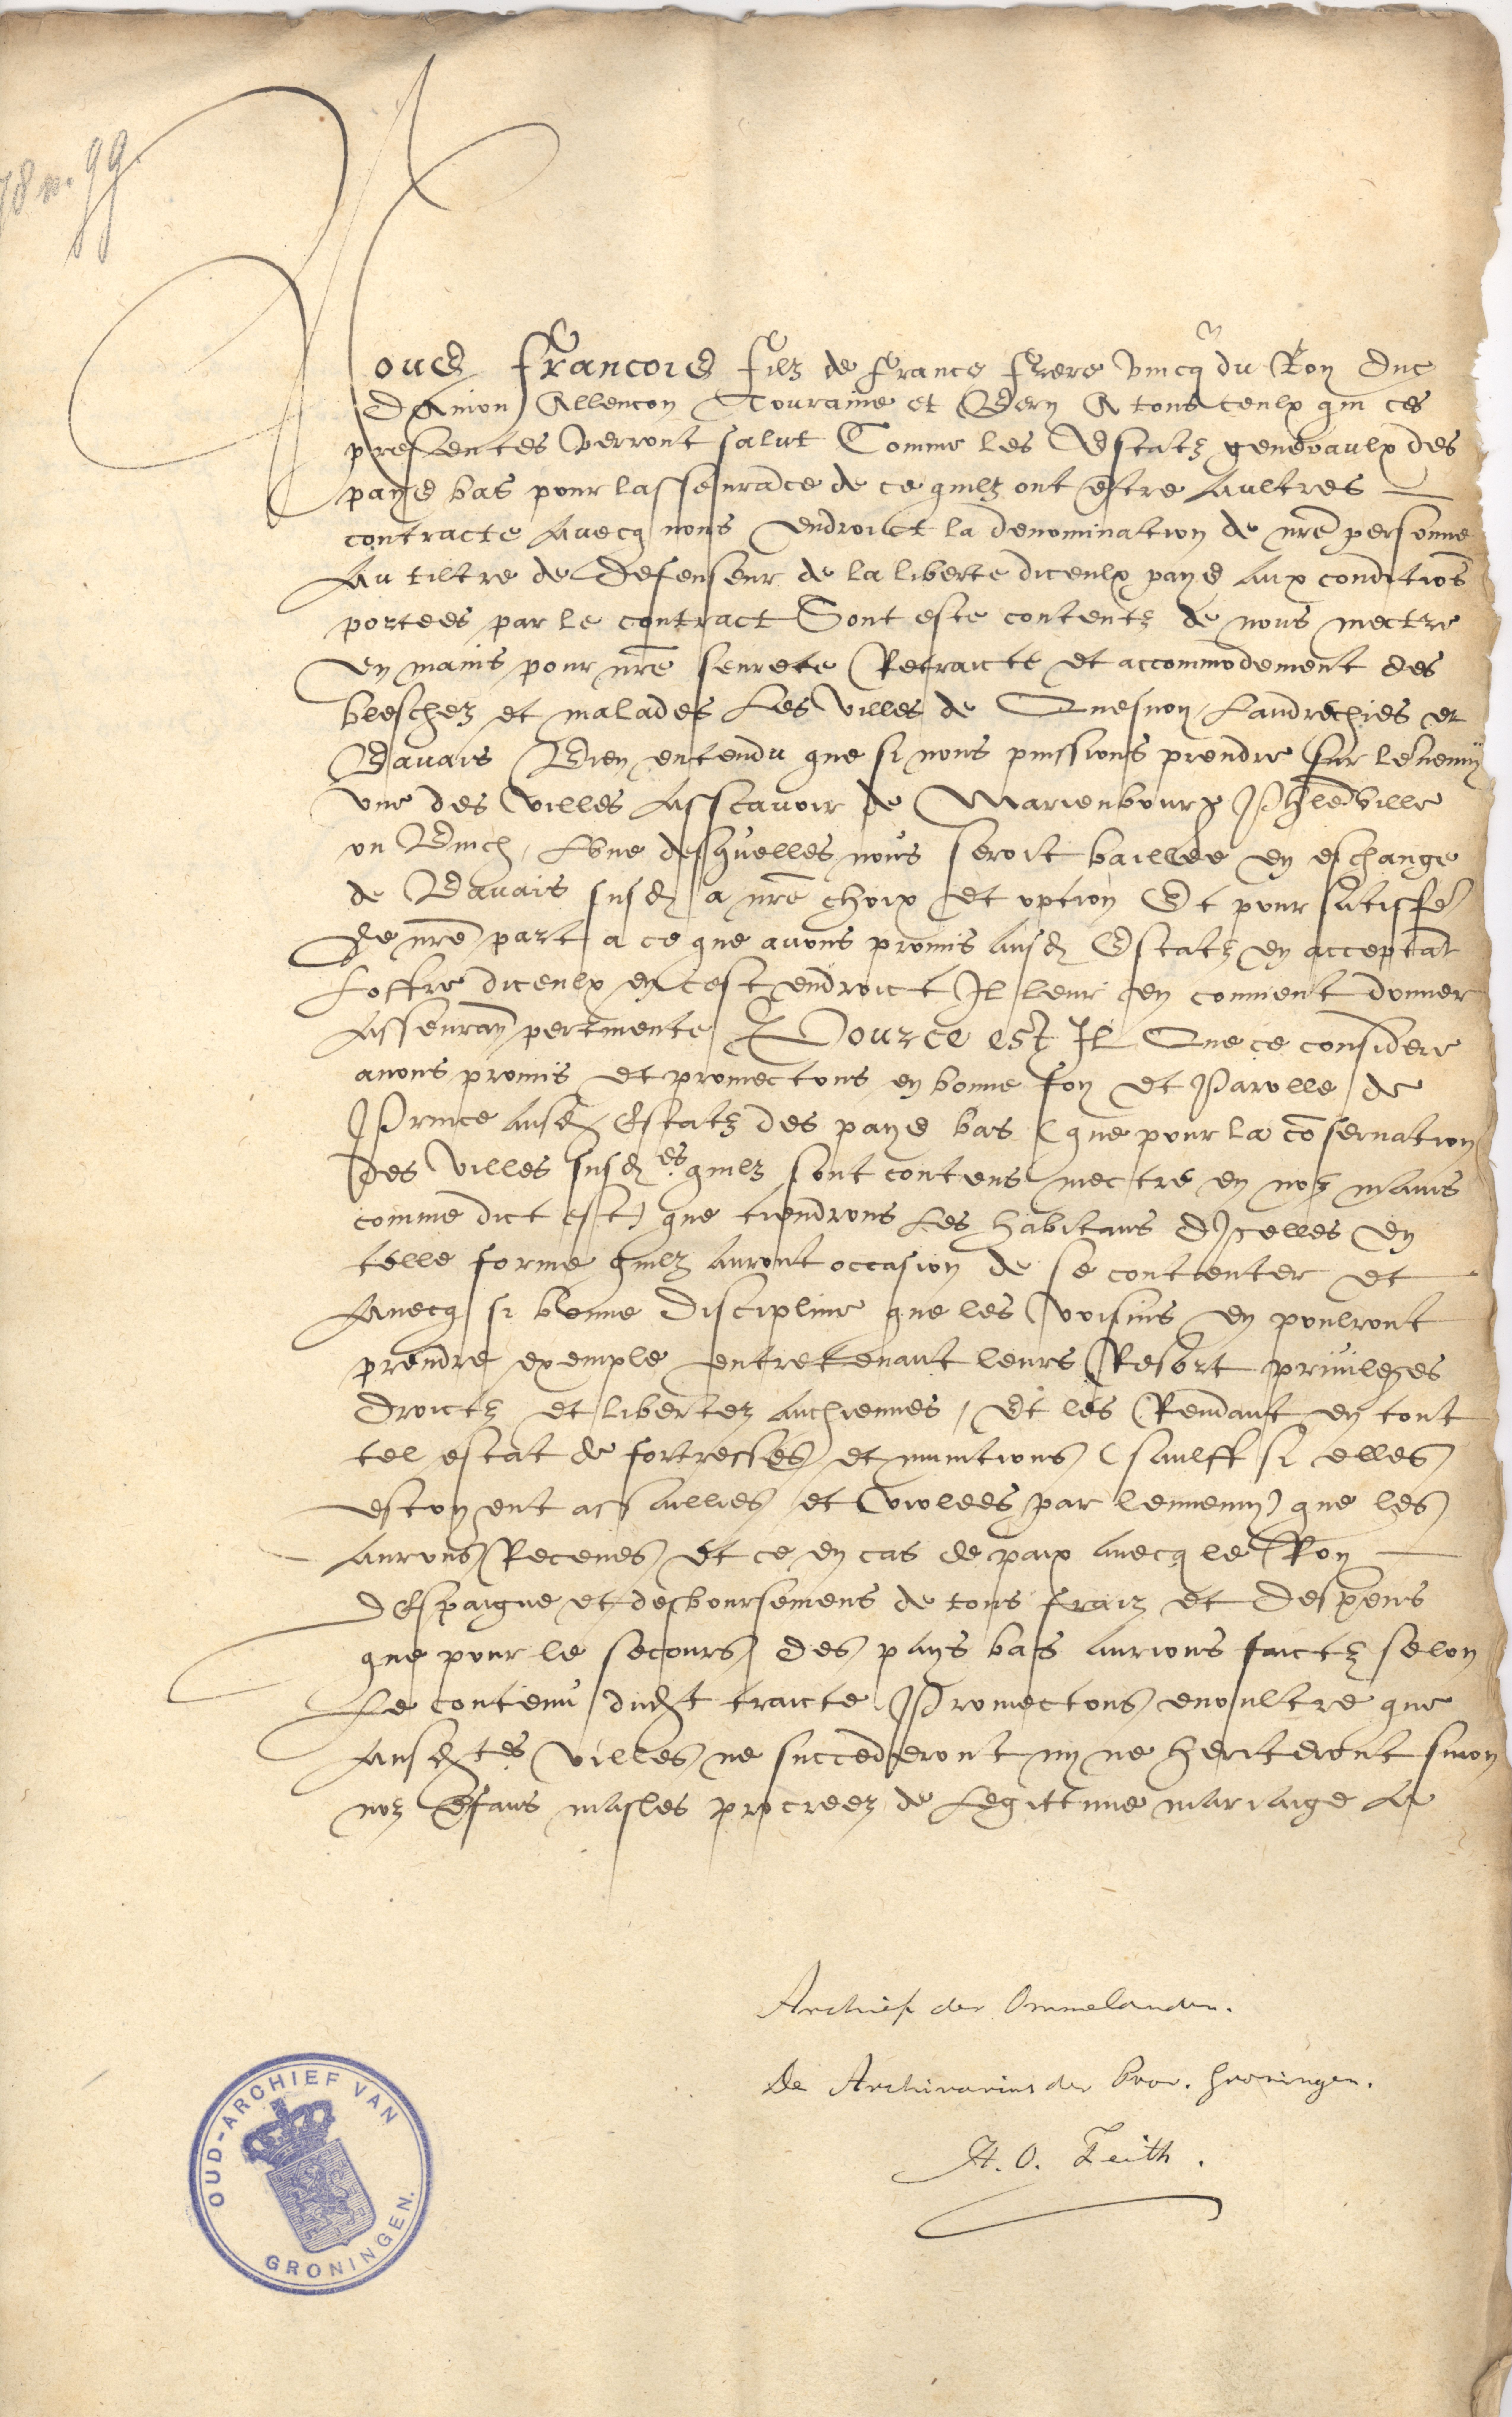 78 n. 99
Nous Francois filz de france frere vnicq du Roy Duc
DAniou Allencon Touraine et Bery A tous ceulx qui ces
presentes verront salut Comme les Estatz generaulx des
pays bas pour lasseurance de ce quilz ont estre aultres
contracte auecq nous endroict la denomination de nre personne
Au tiltre de Defenseur de la liberte diceulx pays aux conditios
portees par le contract Sont este contentz de nous mectre
en mains pour nre seurete Retraicte et accommodement des
bleschez et malades Les villes de Quesnoy Landrechies et
Bauais Bien entendu que si nous puissions prendre sur lennemy
vne des villes Asscauoir de Marienbourg Philleville
ou Binch, Lune desquelles nous seroit baillee en eschange
de Bauais susd a nre choix et option Et pour satisffe
de nre part a ce que auons promis ausd Estatz en acceptat
Loffre diceulx en cest endroict Il leur en conuient donner
Asseuran pertinente Pource est Il Que ce considere
auons promis et promectons en bonne foy et Parolle de
Prince ausd Estatz des pays bas (que pour la coseruation
des villes susdes quilz sont contens mectre en noz mains
comme dict est) que tiendrons Les habitans dIcelles en
telle forme quilz auront occasion de se contenter et
Auecq si bonne Discipline que les voisins en poulront
prendre exemple entretenant leurs Resort priuileges
droictz et libertez anchiennes, Et les Rendant en tout
tel estat de fortresses et munitions (saulff si elles
estoyent assaillies et violees par lennemy) que les
aurons Receues Et ce en cas de paix auecq le Roy
dEspaigne et desboursemens de tous fraiz et despens
que pour le secours des pays bas aurions faictz selon
Le contenu dudt traicte Promectons enoultre que
Ausdtes villes ne succederont ny ne heriteront sinon
noz Efans masles procreez de Legittime mariaige La
Archief der Ommelanden.
De Archivarius der Prov. Groningen.
H. O. Feith.
OUD-ARCHIEF VAN
GRONINGEN.